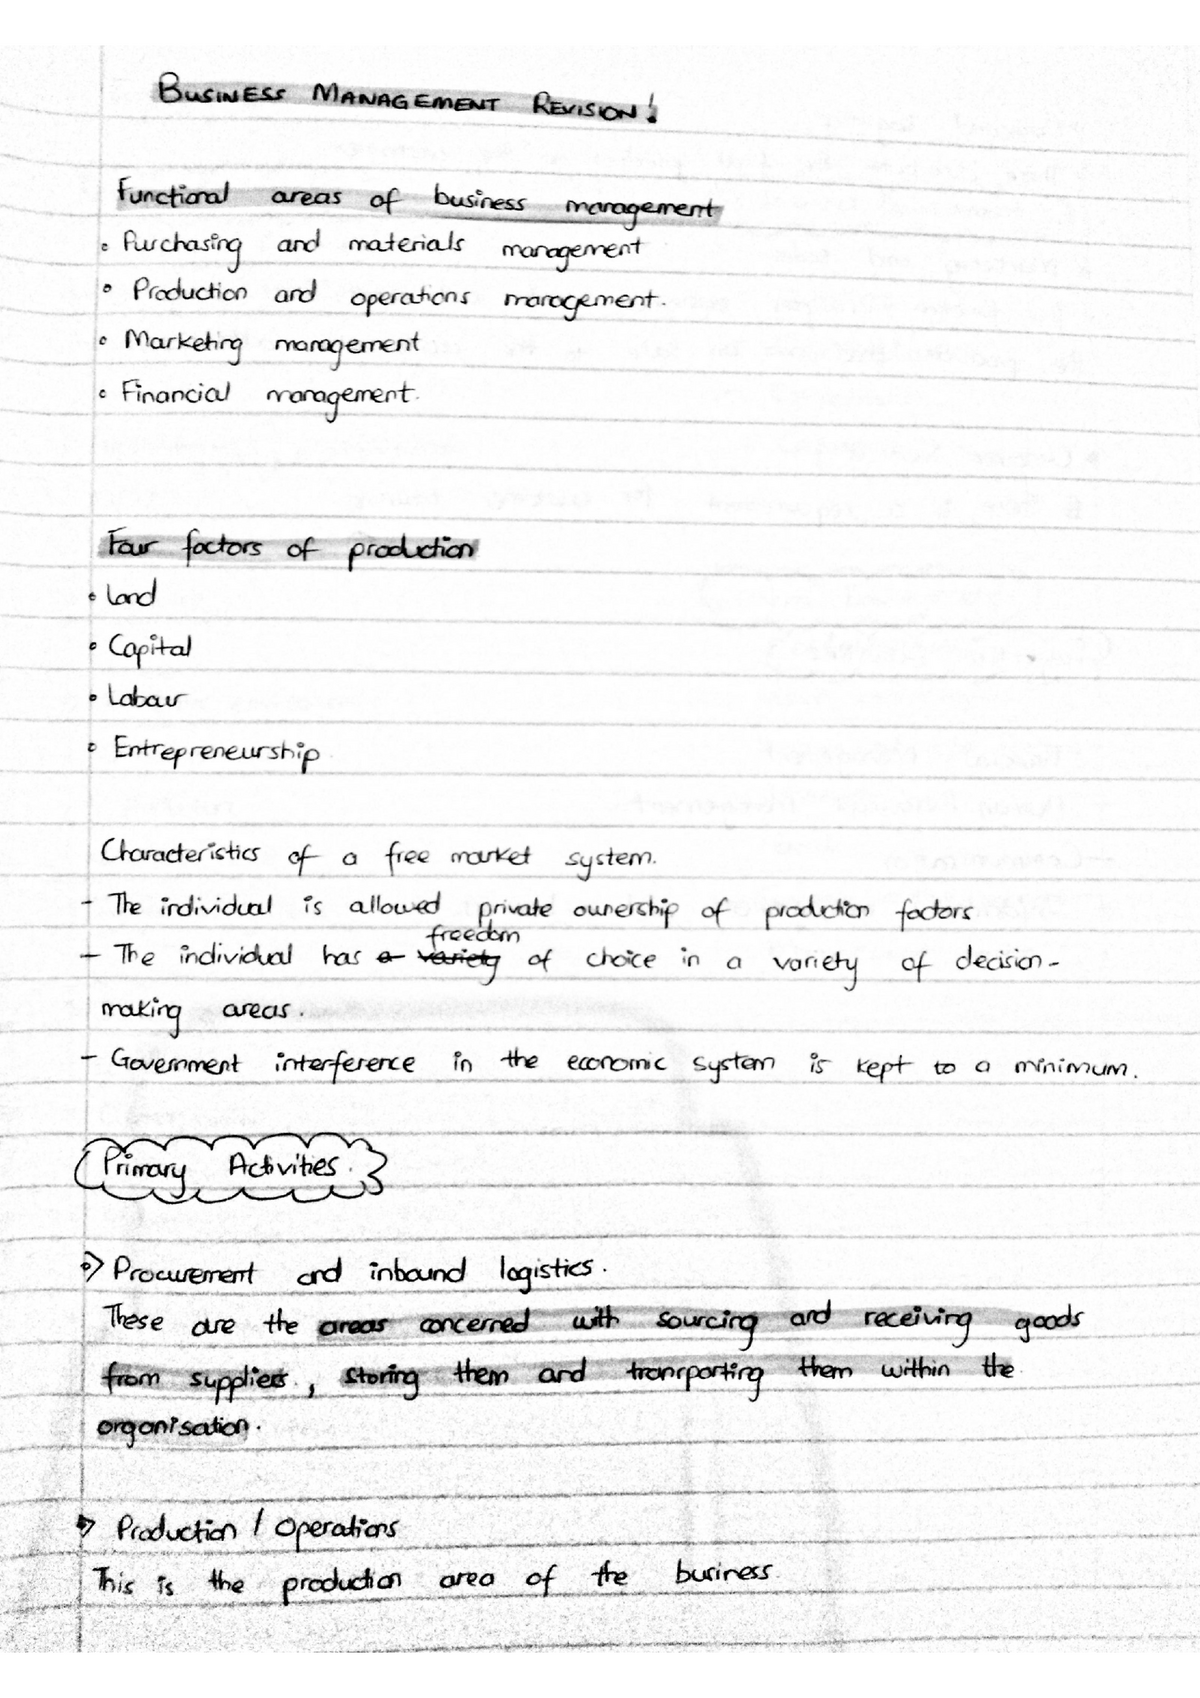 BUSINESS MANAGEMENT REVISION!
Functional areas of business management
• Purchasing and materials management
• Production and operations management.
• Marketing management
• Financial management.
Four factors of production
• Land
• Capital
• Labour
• Entrepreneurship.
Characteristics of a free market system.
- The individual is allowed private ownership of production factors
freedom
- The individual has a variety of choice in a variety of decision-
making areas.
- Government interference in the economic system is kept to a minimum.
Primary Activities.
Procurement and inbound logistics.
These are the areas concerned with sourcing and receiving goods
from suppliers, storing them and transporting them within the
organisation.
Production / Operations
This is the production area of the business.